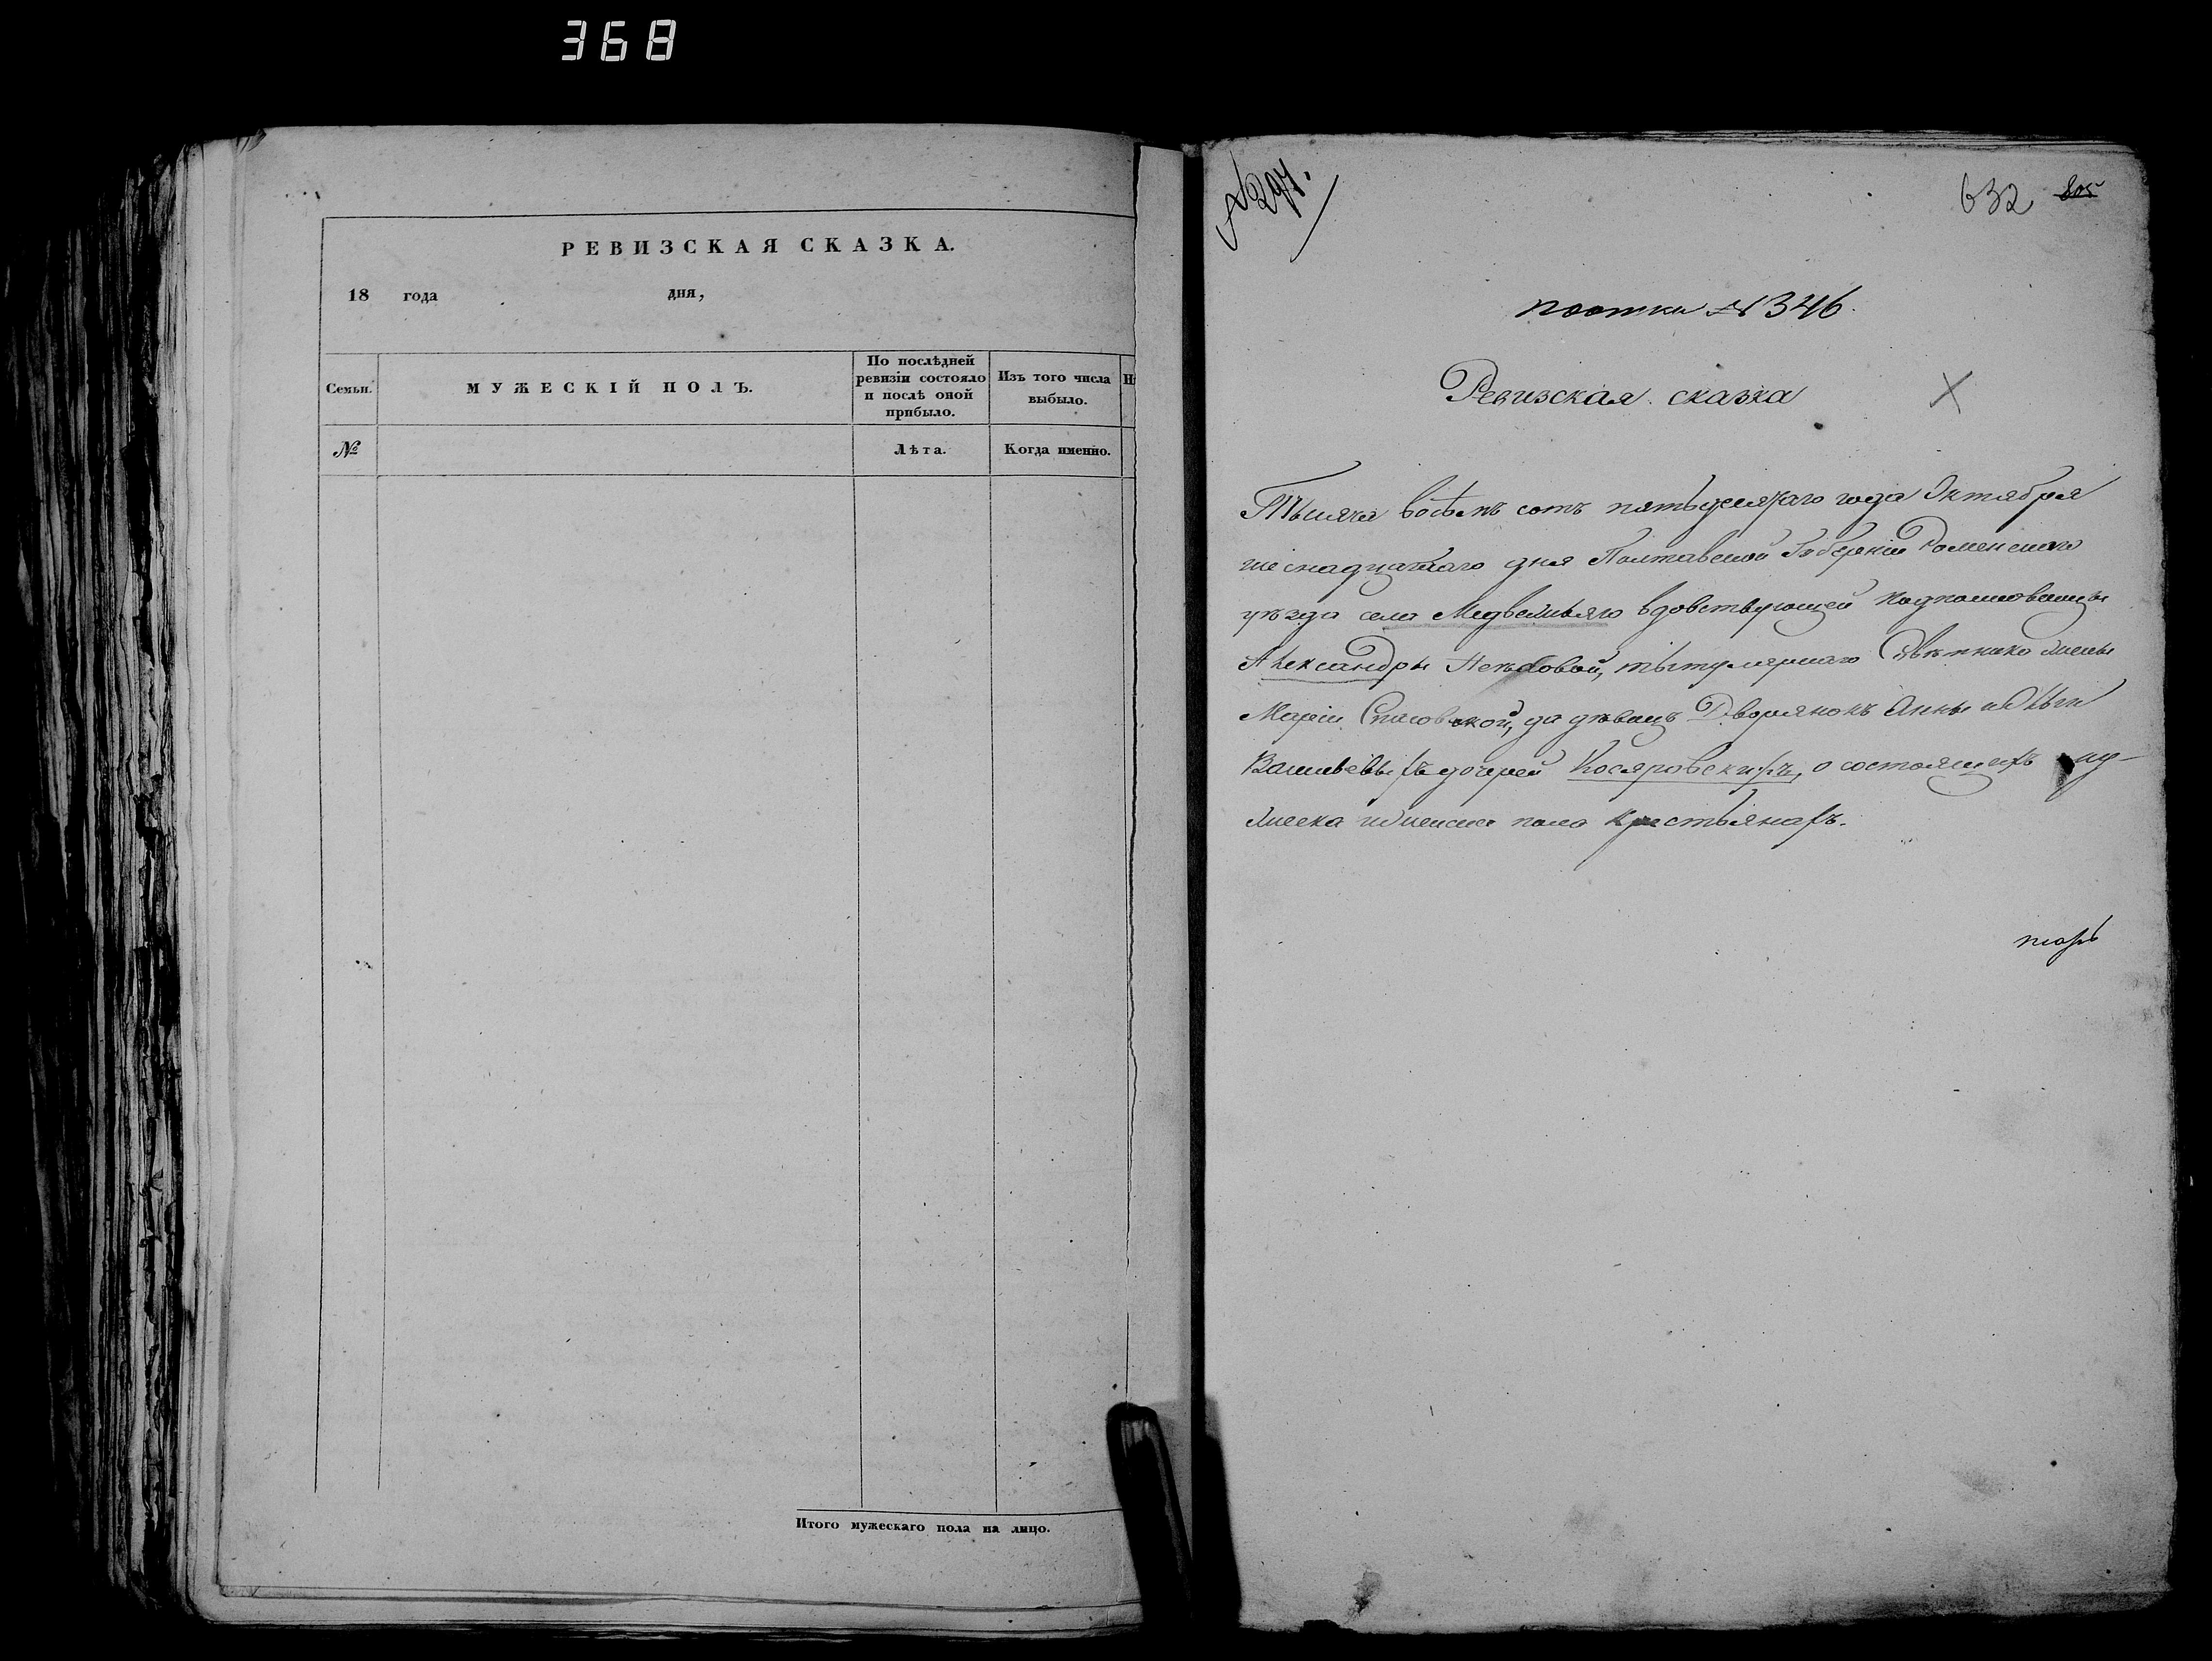 368
РЕВИЗСКАЯ СКАЗКА.
18 года дня,
Семьи.
МУЖЕСКІЙ ПОЛЪ.
По послѣдней
ревизіи состояло
и послѣ оной
прибыло.
Изъ того числа
выбыло.
№
Лѣта.
Когда именно.
Итого мужескаго пола на лицо.
№ 297.
632 805
почты № 346.
Ревизская сказка
Тысяча восѣмъ сотъ пятьдесятаго года Октября
шеснадцатаго дня Полтавской Губерніи Роменскаго
уѣзда села Медвежьяго вдовствующей подполковницы
Александры тытулярнаго Совѣтника жены
Маріи Спасовской, да дѣвицъ Дворянокъ Анны и
Васильевыхъ дочерей Косяровскихъ, о состоящихъ му-
жеска и женска пола крестьянахъ.